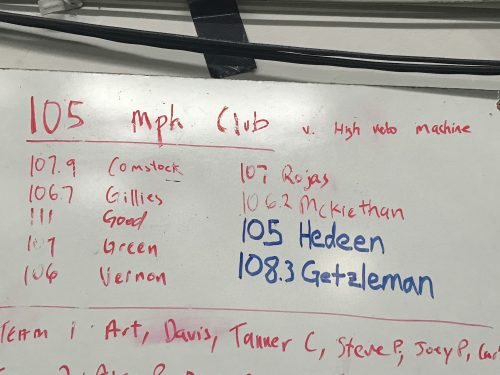 105 mph Club v. High velo machine
107.9 Comstock
106.7 Gillies
111 Good
107 Green
106 Vernon
107 Rojas
106.2 McKiethan
105 Hedeen
108.3 Getzleman
Team 1: Art, Davis, Tanner C, Steve P, Joey P,